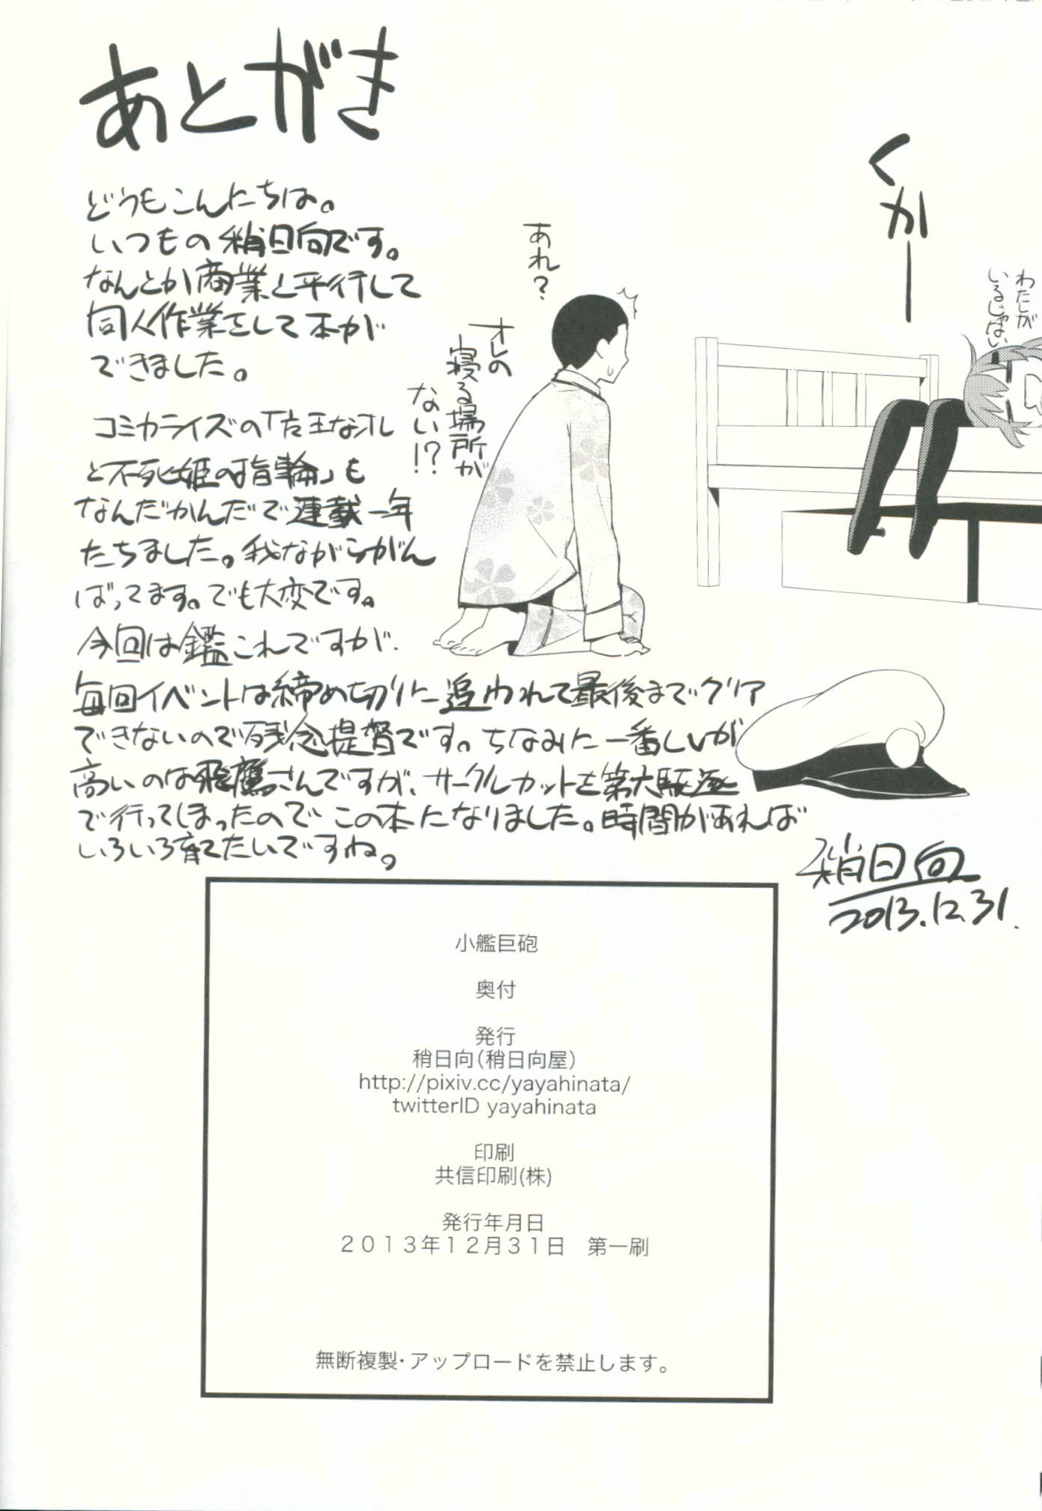 あとがき
どうもこんにちは。
いつもの稍日向です。
なんとか商業と平行して
同人作業をして本が
できました。
コミカライズの「左王なオレ
と不死姫の指輪」も
なんだかんだで連載一年
たちました。我ながらがん
ばってます。でも大変です。
今回は鑑これですが、
毎回イベントは締め切りに追われて最後までクリア
できないので残念提督です。ちなみに一番Lvが
高いのは飛鷹さんですが、サークルカットを第六駆逐
で行ってしまったのでこの本になりました。時間があれば
いろいろ育てたいですね。
くかー
わたしが
いるじゃない
あれ?
オレの
寝る場所が
ない!?
稍日向
2013.12.31.
小艦巨砲
奥付
発行
稍日向(稍日向屋)
http://pixiv.cc/yayahinata/
twitterID yayahinata
印刷
共信印刷(株)
発行年月日
2013年12月31日 第一刷
無断複製・アップロードを禁止します。